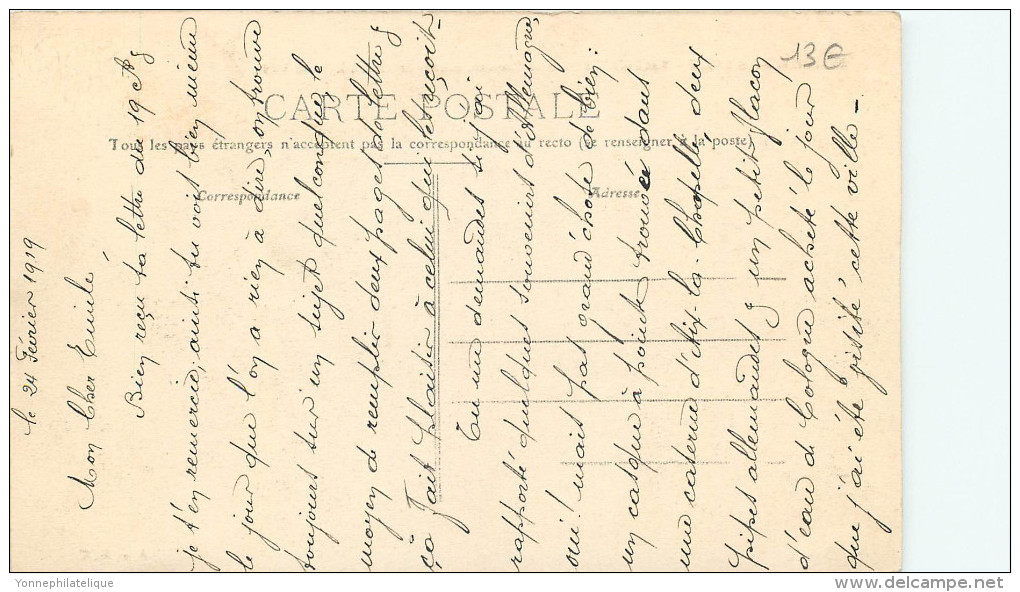 le 24 Février 1919
Mon Cher Emile
Bien reçu ta lettre du 19 ct &
je t'en remercie, ainsi tu vois bien même
le jour que l'on a rien à dire, on trouve
toujours sur un sujet quelconque le
moyen de remplir deux pages de lettre &
ça fait plaisir à celui qui les reçoit-
Tu me demandes si j'ai
rapporté quelques souvenirs d'Allemagne,
oui! mais pas grand'chose de bien:
un casque à pointe trouvé dans
une caserne d'Aix-la-Chapelle, deux
pipes allemandes & un petit flacon
d'eau de Cologne acheté le jour
que j'ai été visité cette ville-
13€
CARTE POSTALE
Tous les pays étrangers n'acceptent pas la correspondance au recto (se renseigner à la poste)
Correspondance
Adresse
Yonnephilatelique
delcampe.net